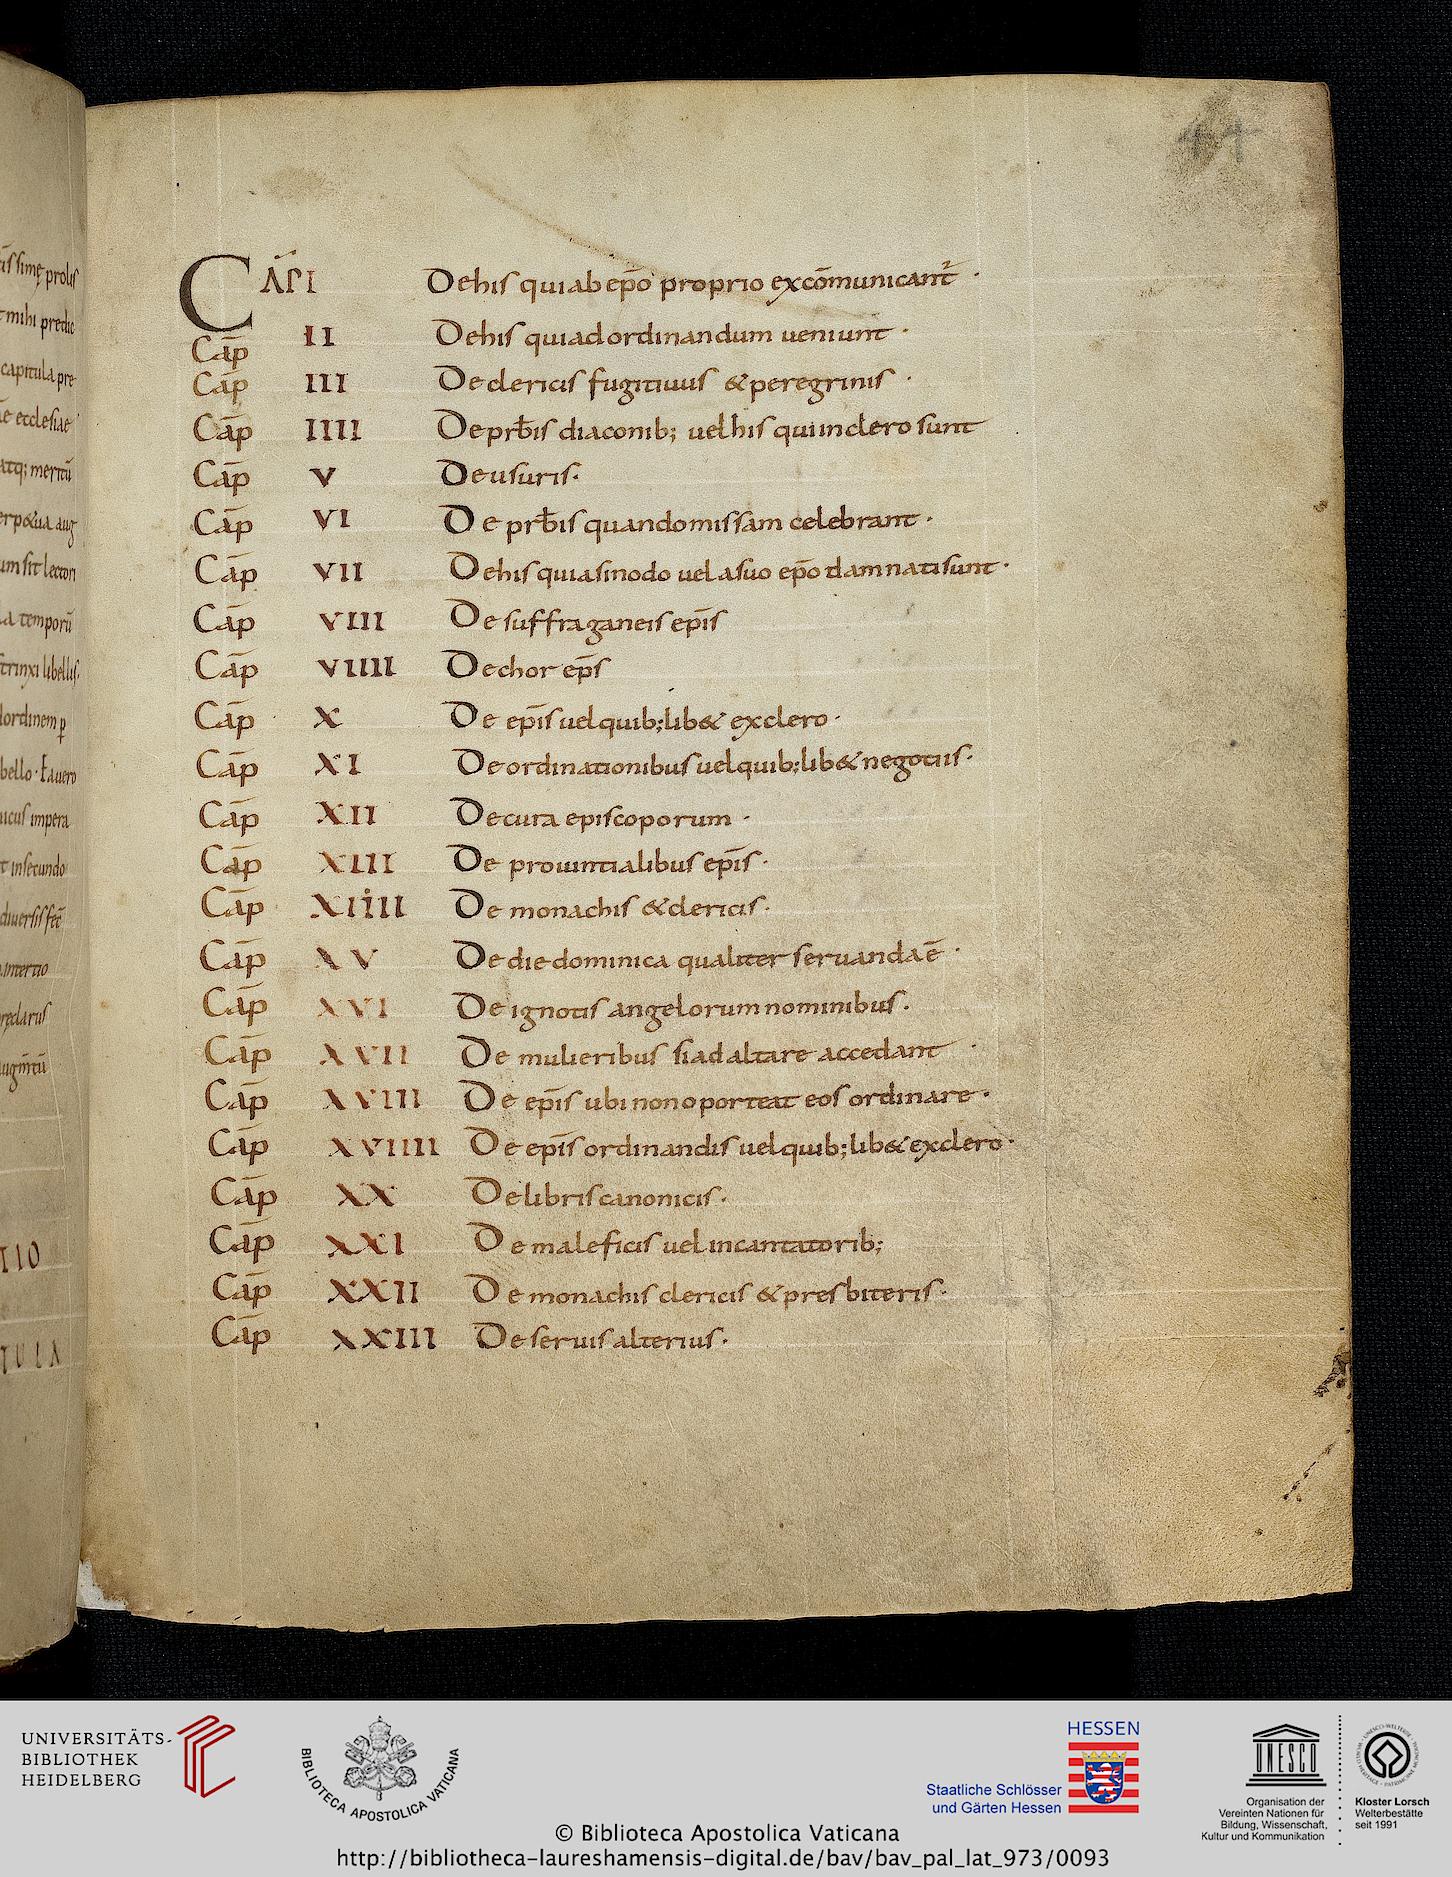 CAP̄ I De his qui ab ep̄o proprio excōmunicant᷑ ·
Cap̄ II De his qui ad ordinandum ueniunt ·
Cap̄ III De clericis fugitiuis & peregrinis ·
Cap̄ IIII De prb̄is diaconib; uel his qui in clero sunt
Cap̄ V De usuris·
Cap̄ VI De prb̄is quando missam celebrant ·
Cap̄ VII De his qui a sinodo uel a suo ep̄o damnati sunt ·
Cap̄ VIII De suffraganeis ep̄is
Cap̄ VIIII De chor ep̄s
Cap̄ X De ep̄is uel quib;lib& ex clero ·
Cap̄ XI De ordinationibus uel quib;lib& negotiis ·
Cap̄ XII De cura episcoporum ·
Cap̄ XIII De prouintialibus ep̄is ·
Cap̄ XIIII De monachis & clericis ·
Cap̄ XV De die dominica qualiter seruanda ē ·
Cap̄ XVI De ignotis angelorum nominibus ·
Cap̄ XVII De mulieribus si ad altare accedant ·
Cap̄ XVIII De ep̄is ubi non oporteat eos ordinare ·
Cap̄ XVIIII De ep̄is ordinandis uel quib;lib& ex clero ·
Cap̄ XX De libris canonicis ·
Cap̄ XXI De maleficis uel incantatorib;
Cap̄ XXII De monachis clericis & presbiteris ·
Cap̄ XXIII De seruis alterius ·
mihi predic
capitula pre
ecclesiae
atq; meritū
temporū
strinxi libellis·
ordinem p̱
bello · Fauero
impera
insecundo
TIO
TULA
UNIVERSITÄTS-
BIBLIOTHEK
HEIDELBERG
BIBLIOTECA APOSTOLICA VATICANA
HESSEN
Staatliche Schlösser
und Gärten Hessen
UNESCO
Organisation der
Vereinten Nationen für
Bildung, Wissenschaft,
Kultur und Kommunikation
Kloster Lorsch
Welterbestätte
seit 1991
© Biblioteca Apostolica Vaticana
http://bibliotheca-laureshamensis-digital.de/bav/bav_pal_lat_973/0093